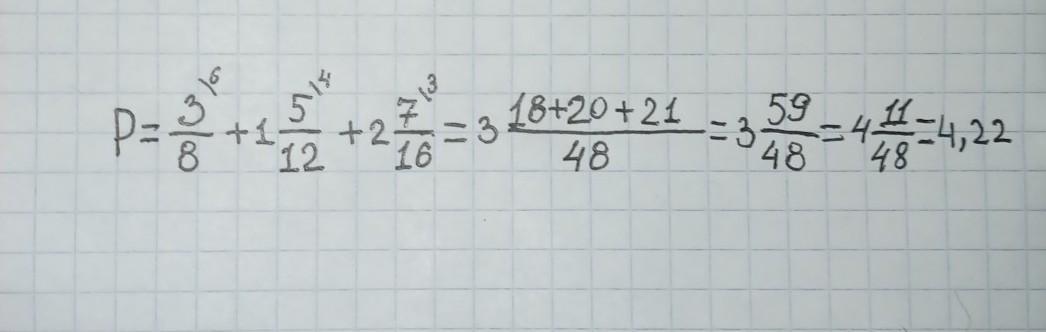 P = 3\6/8 + 1 5\4/12 + 2 7\3/16 = 3 18+20+21/48 = 3 59/48 = 4 11/48 = 4,22